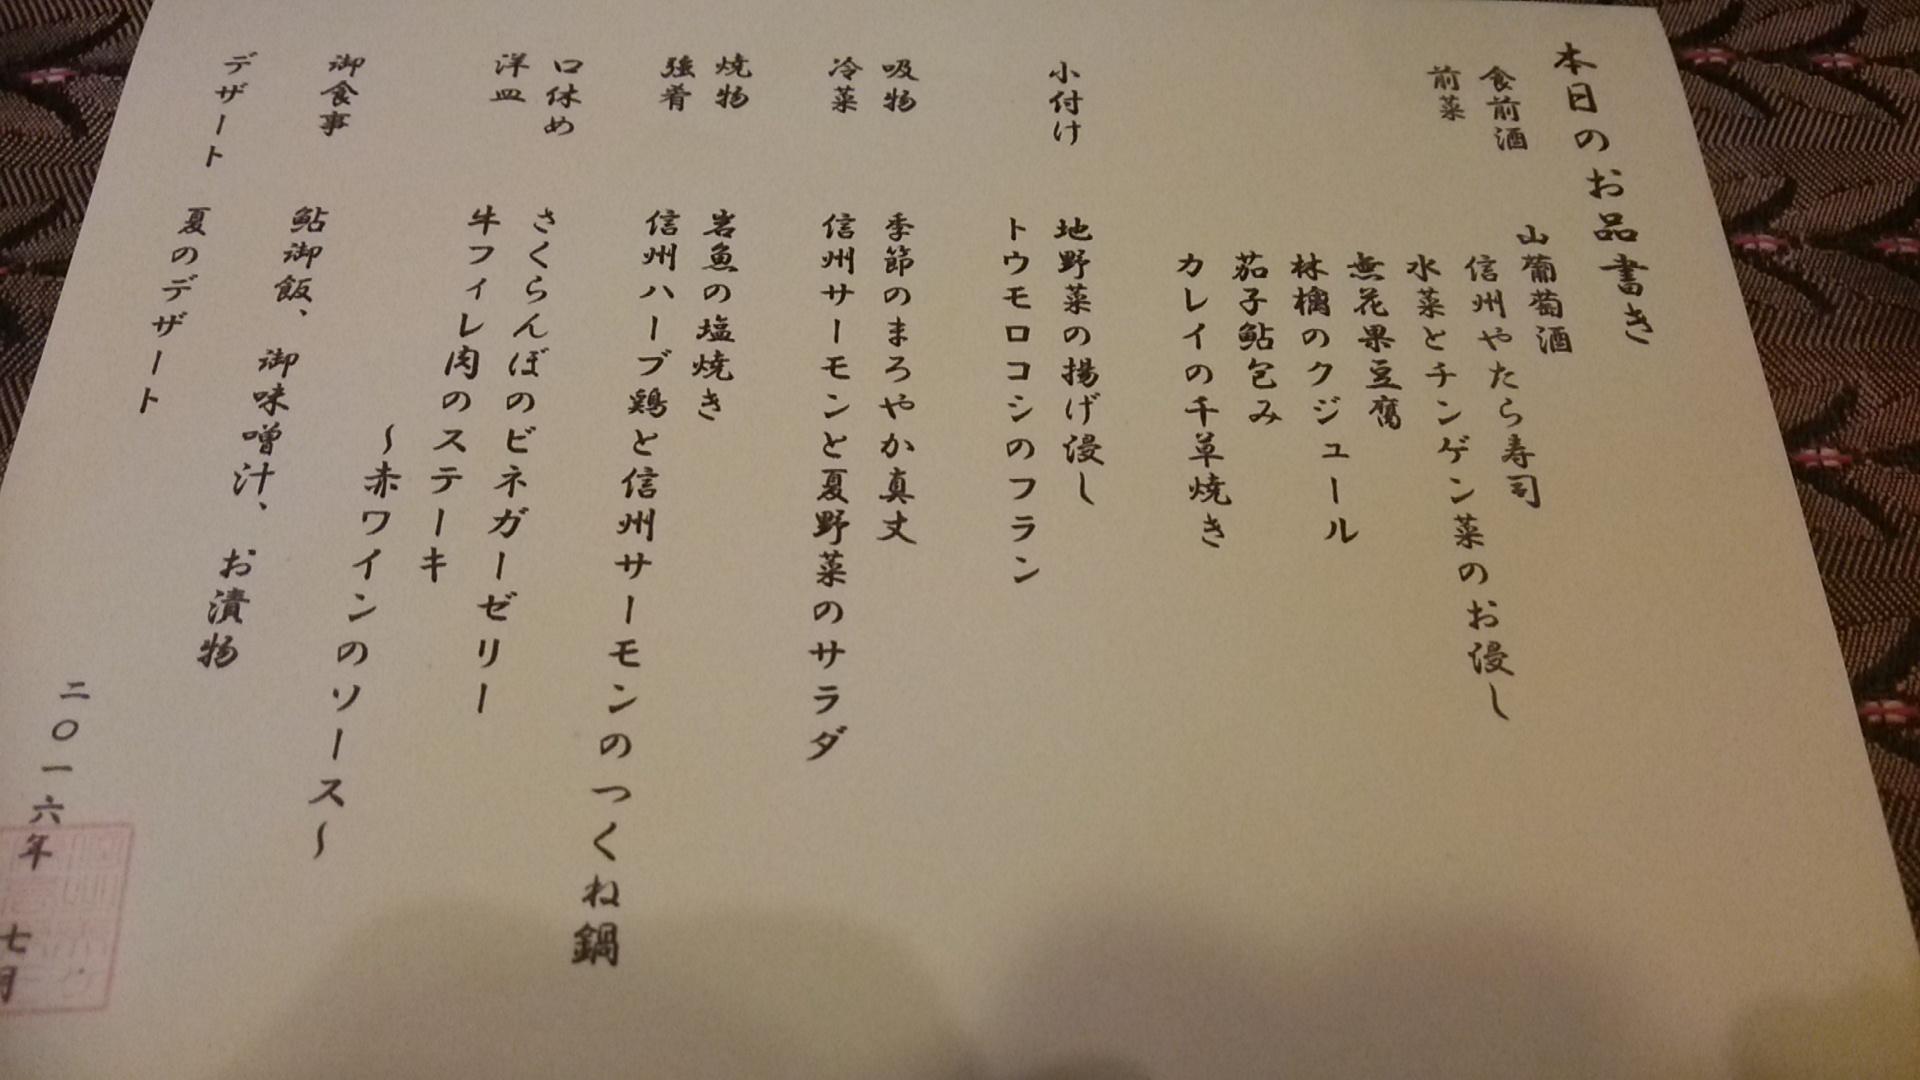 本日のお品書き
食前酒 山葡萄酒
前菜 信州やたら寿司
水菜とチンゲン菜のお浸し
無花果豆腐
林檎のクジュール
茄子鮎包み
カレイの千草焼き
小付け 地野菜の揚げ浸し
トウモロコシのフラン
吸物 季節のまろやか真丈
冷菜 信州サーモンと夏野菜のサラダ
焼物 岩魚の塩焼き
強肴 信州ハーブ鶏と信州サーモンのつくね鍋
口休め さくらんぼのビネガーゼリー
洋皿 牛フィレ肉のステーキ
～赤ワインのソース～
御食事 鮎御飯、御味噌汁、お漬物
デザート 夏のデザート
二〇一六年 七月